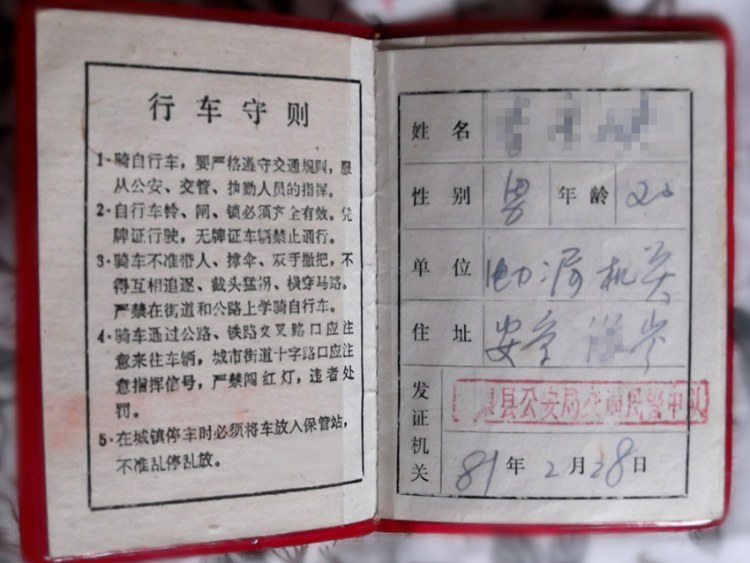 行车守则
1·骑自行车，要严格遵守交通规则，服
从公安、交管、执勤人员的指挥。
2·自行车铃、闸、锁必须齐全有效。凭
牌证行驶，无牌证车辆禁止通行。
3·骑车不准带人、撑伞、双手撒把，不
得互相追逐、截头猛拐、横穿马路。
严禁在街道和公路上学骑自行车。
4·骑车通过公路、铁路交叉路口应注
意来往车辆，城市街道十字路口应注
意指挥信号，严禁闯红灯，违者处
罚。
5·在城镇停车时必须将车放入保管站，
不准乱停乱放。
姓名
性别 男 年龄 20
单位 机关
住址
发证机关 县公安局交通民警中队
81年2月28日